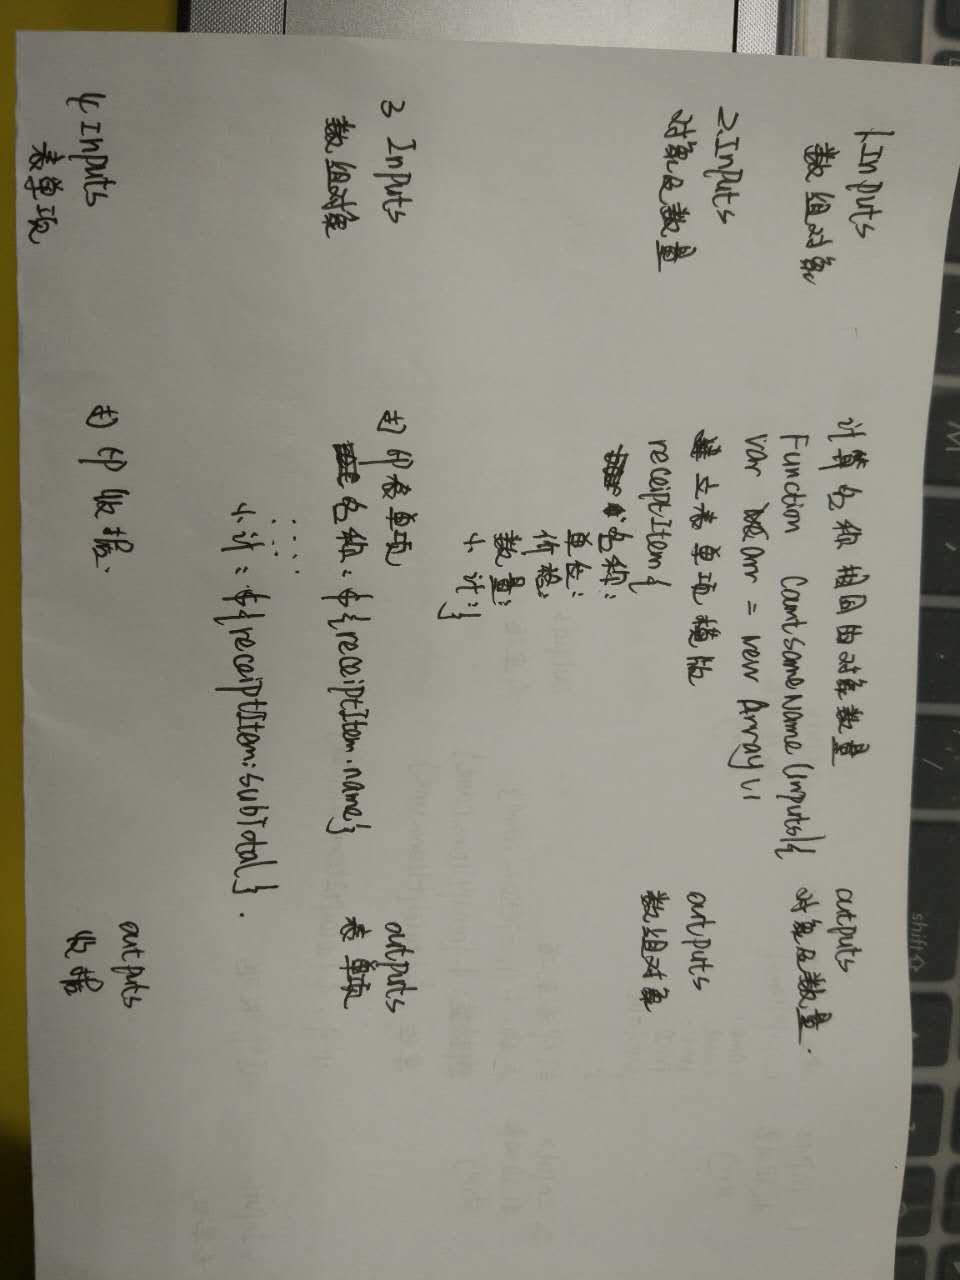 1.Inputs
数组对象
计算名称相同的对象数量
Function CountsameName(inputs){
var arr = new Array()
outputs
对象及数量.
2.Inputs
对象及数量
建立表单项模版
receiptItem{
名称:
单位:
价格:
数量:
小计:}
outputs
数组对象
3 Inputs
数组对象
打印表单项
名称:${receiptItem.name}
......
小计:${receiptItem.subTotal}.
outputs
表单项
4 Inputs
表单项
打印收据.
outputs
收据
shift